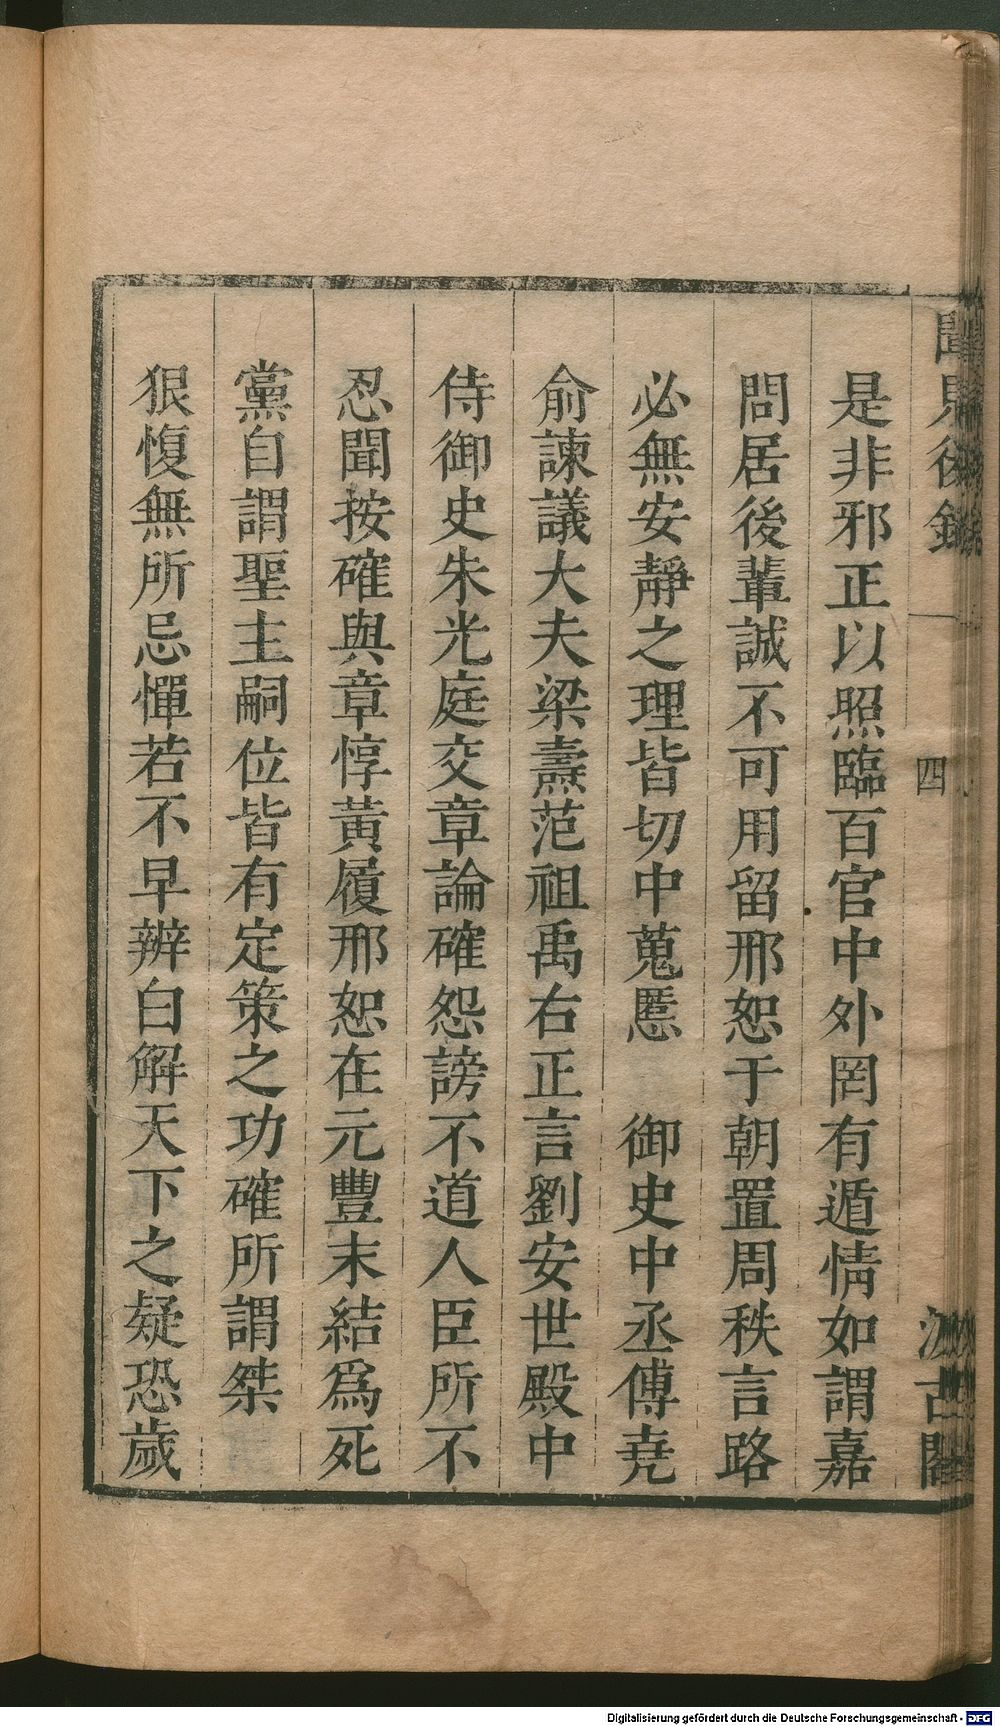 聞見後錄
四
汲古閣
是非邪正以照臨百官中外罔有遁情如謂嘉
問居後輩誠不可用留邢恕于朝置周秩言路
必無安靜之理皆切中蒐慝 御史中丞傅堯
俞諫議大夫梁燾范祖禹右正言劉安世殿中
侍御史朱光庭交章論確怨謗不道人臣所不
忍聞按確與章惇黃履邢恕在元豐末結爲死
黨自謂聖主嗣位皆有定策之功確所謂桀
狠愎無所忌憚若不早辨白解天下之疑恐歲
Digitalisierung gefördert durch die Deutsche Forschungsgemeinschaft - DFG